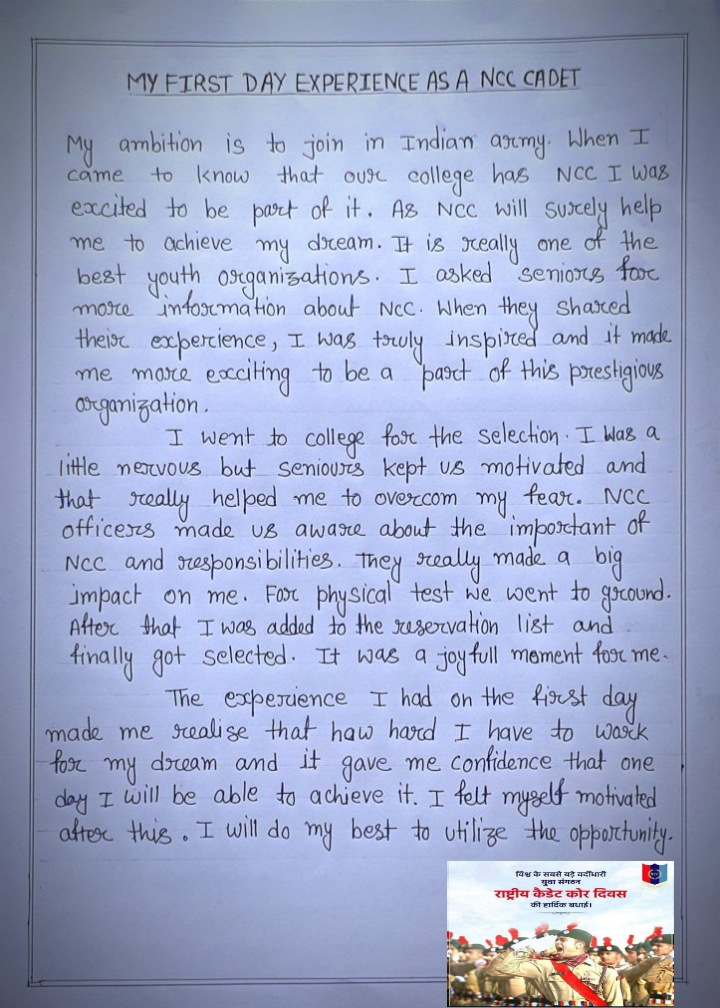 MY FIRST DAY EXPERIENCE AS A NCC CADET
My ambition is to join in Indian army. When I
came to know that our college has NCC I was
excited to be part of it. As NCC will surely help
me to achieve my dream. It is really one of the
best youth organizations. I asked seniors for
more information about NCC. When they shared
their experience, I was truly inspired and it made
me more exciting to be a part of this prestigious
organization.
I went to college for the selection. I was a
little nervous but seniours kept us motivated and
that really helped me to overcom my fear. NCC
officers made us aware about the important of
NCC and responsibilities. They really made a big
impact on me. For physical test we went to ground.
After that I was added to the reservation list and
finally got selected. It was a joyfull moment for me.
The experience I had on the first day
made me realise that haw hard I have to work
for my dream and it gave me confidence that one
day I will be able to achieve it. I felt myself motivated
after this. I will do my best to utilize the opportunity.
विश्व के सबसे बड़े वर्दीधारी
युवा संगठन
राष्ट्रीय कैडेट कोर दिवस
की हार्दिक बधाई।